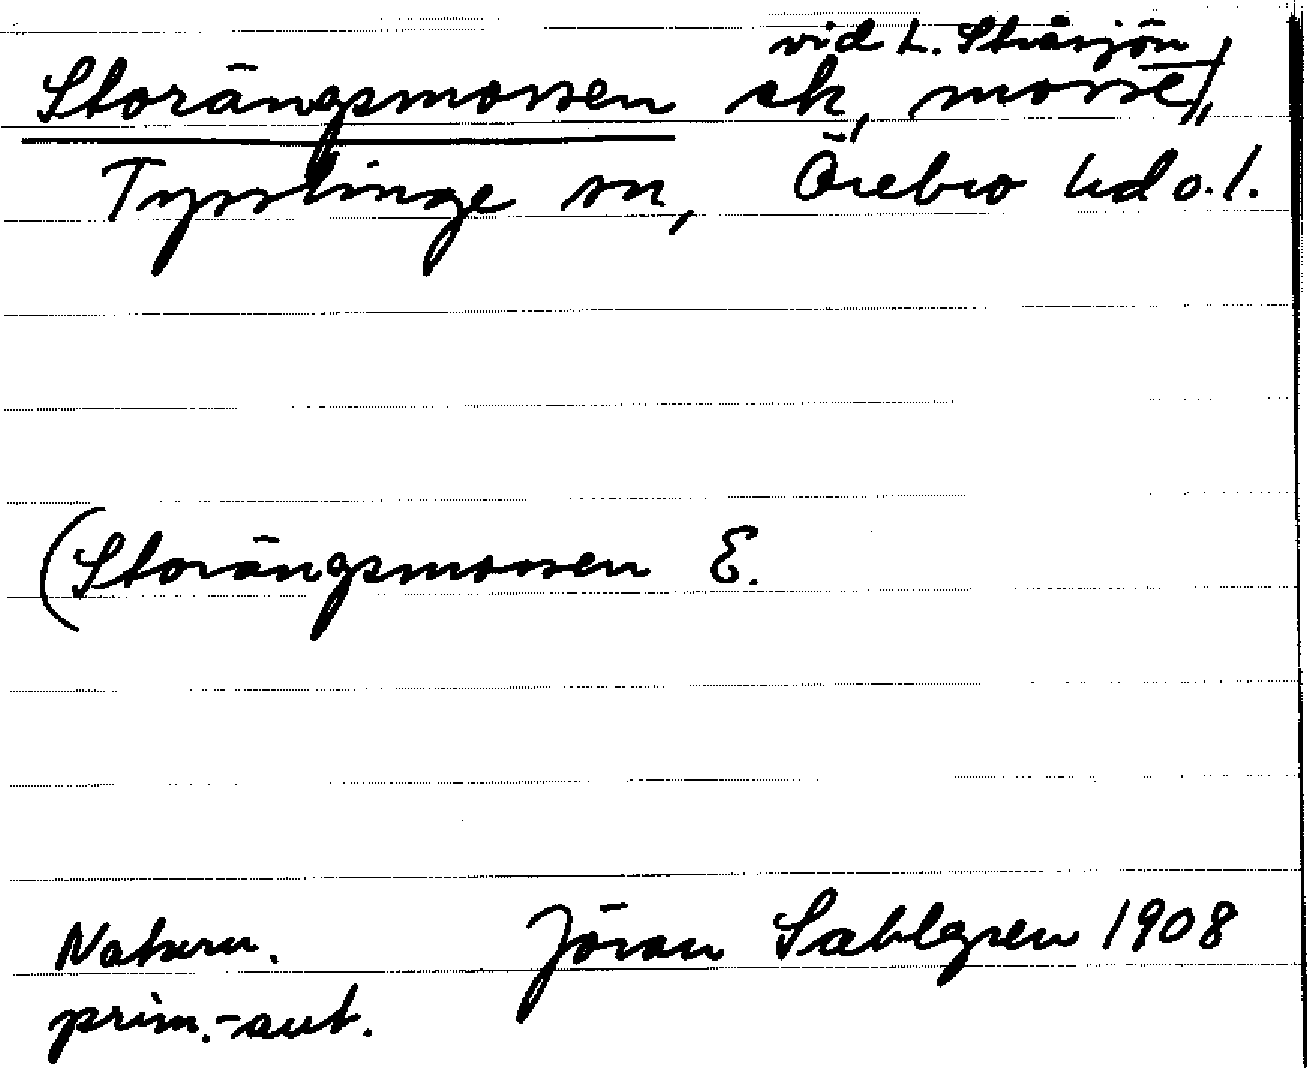 vid L. Stråsjön
Storängsmossen sk, mosse,
Tysslinge sn, Örebro hd o. l.
(Storängsmossen E.
Naturn. Jöran Sahlgren 1908
prim.-aut.